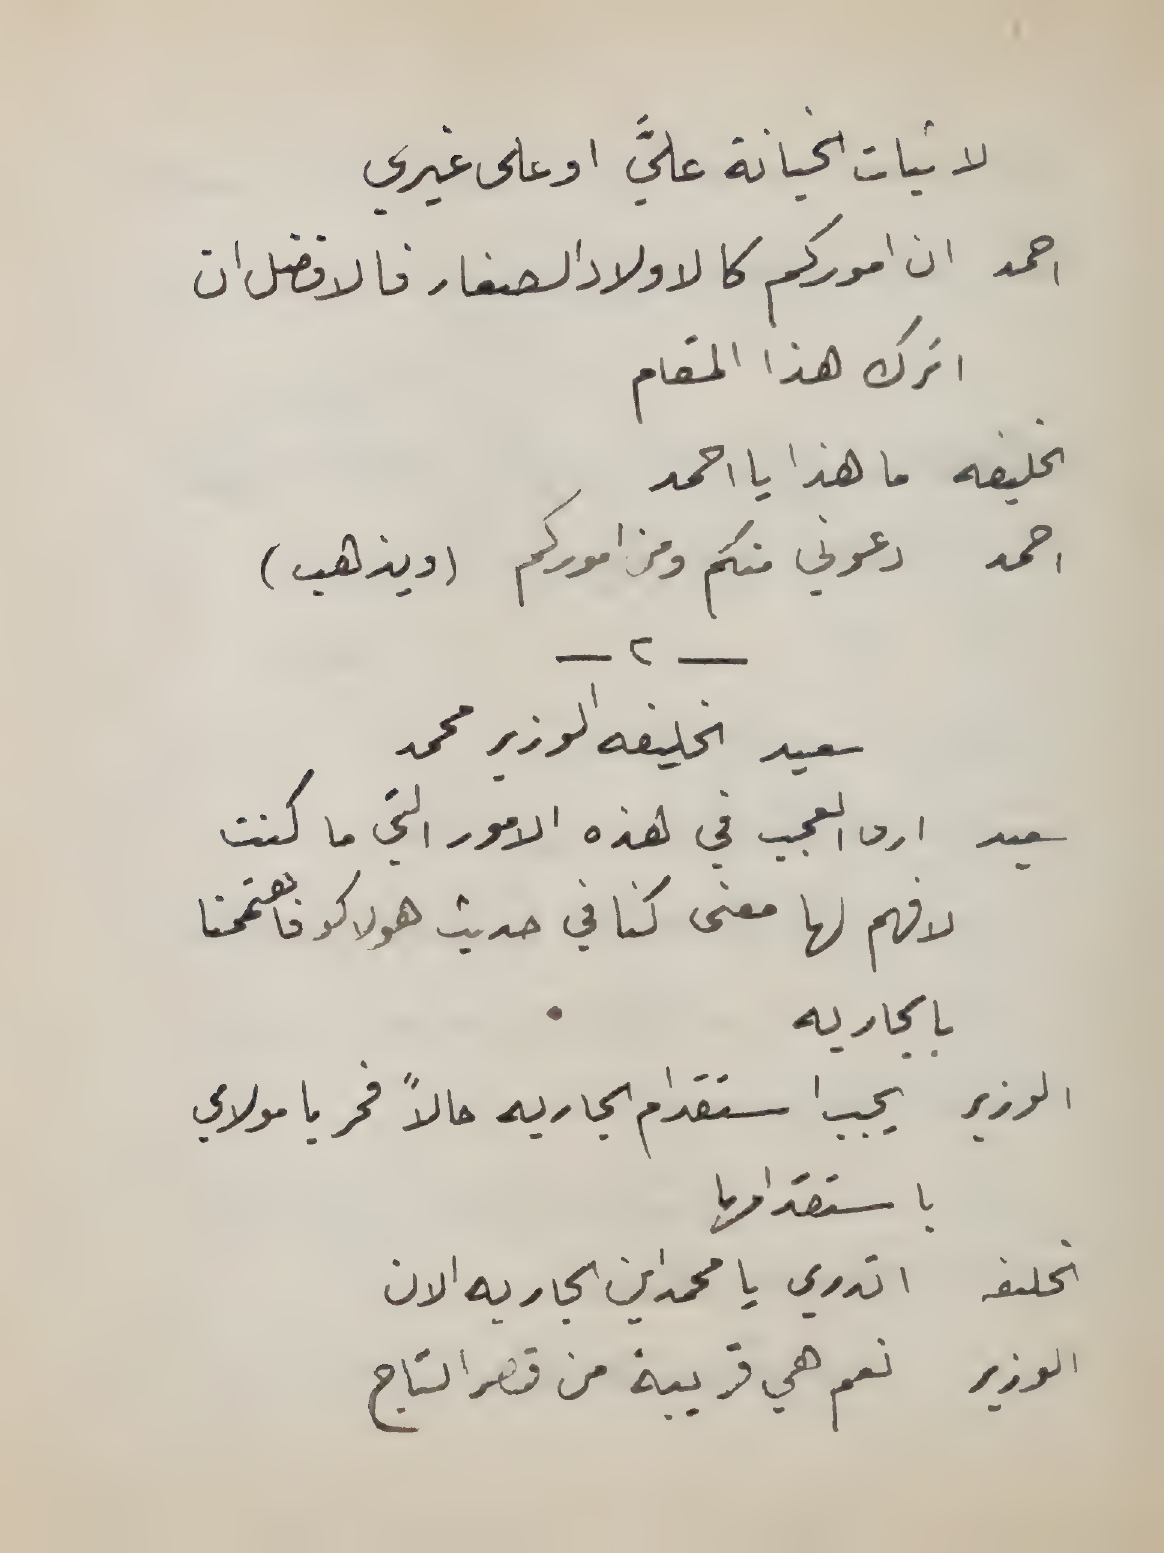 لاثبات الخيانة عليَّ او على غيري
احمد ان اموركم كالاولاد الصغار فالافضل ان
اترك هذا المقام
الخليفه ما هذا يا احمد
احمد دعوني منكم ومن اموركم (ويذهب)
— ٢ —
سعيد الخليفه الوزير محمد
سعيد ارى العجب في هذه الامور التي ما كنت
لافهم لها معنى كنا في حديث هولاكو فاهتممنا
بالجاريه
الوزير يجب استقدام الجاريه حالاً فمر يا مولاي
باستقدامها
الخليفه اتدري يا محمد اين الجاريه الان
الوزير نعم هي قريبة من قصر التاج